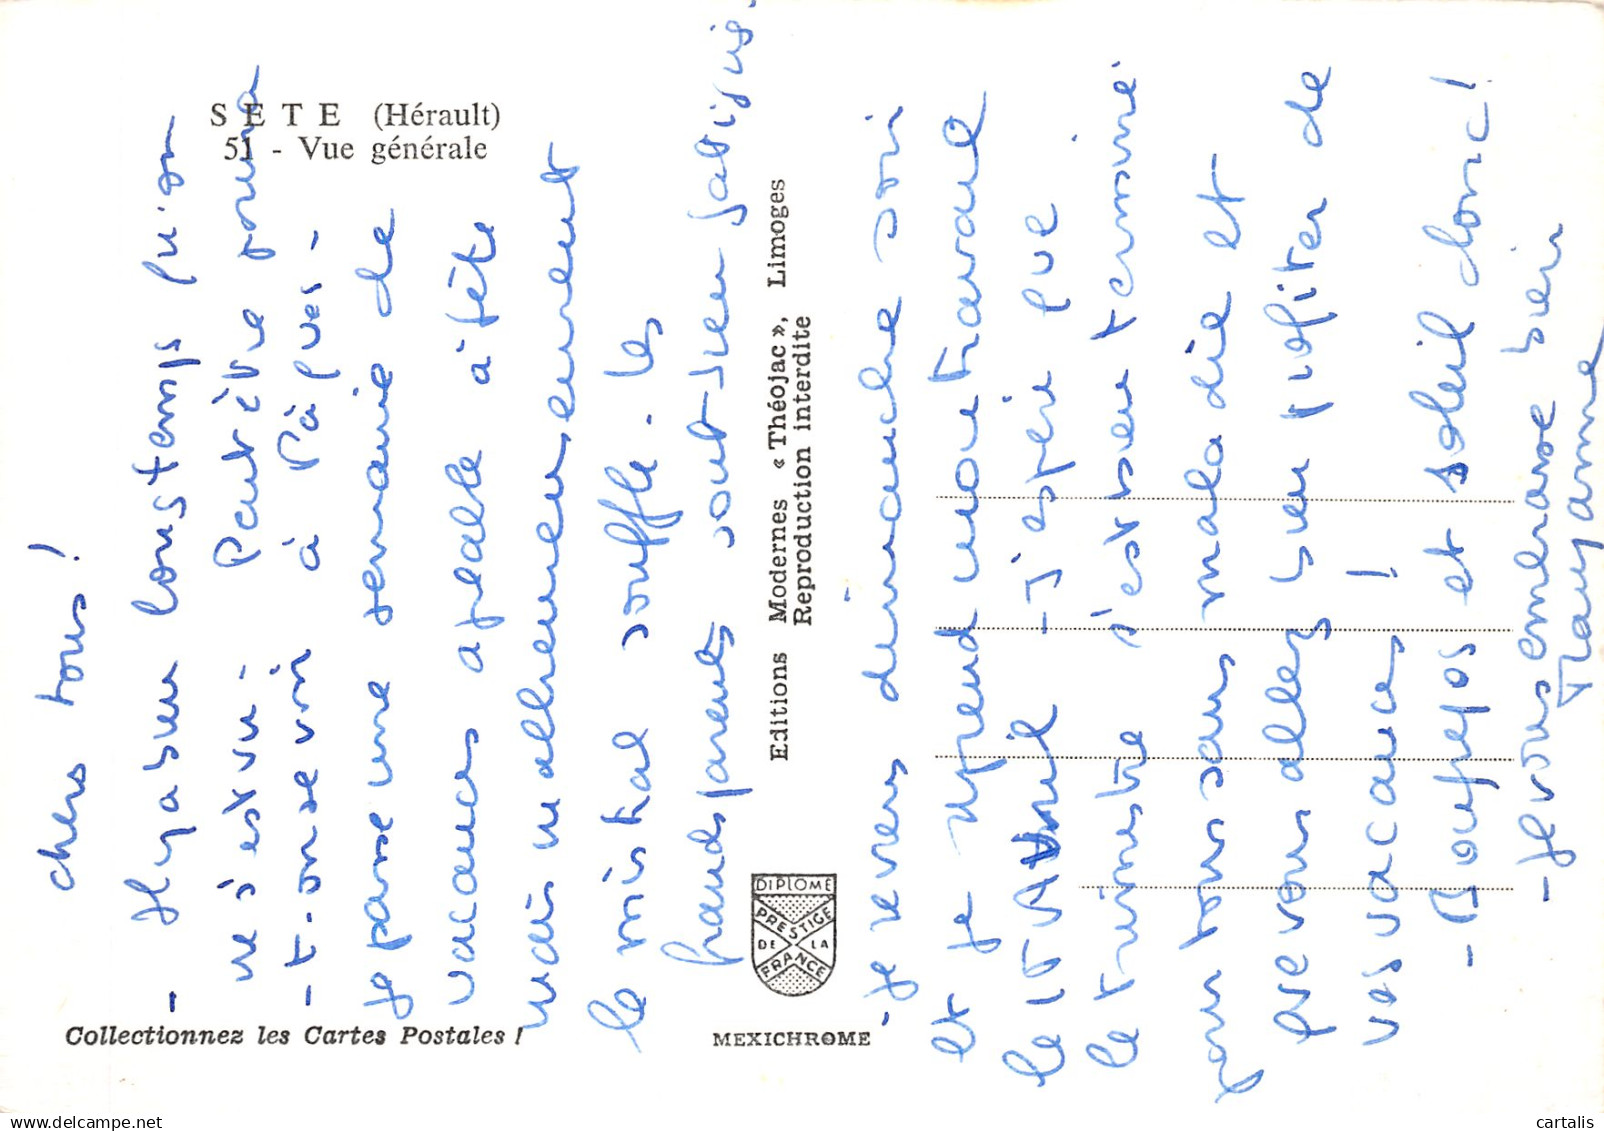 SETE (Hérault)
51 - Vue générale
chers tous !
- Il y a bien longtemps qu'on
ne s'est vu - Peut être pourra
- t-on se voir à Pâques -
je passe une semaine de
vacances agréable à Sète
mais malheureusement
le mistral souffle - les
grands parents sont bien fatigués.
- je reviens dimanche soir
et je reprend mon travail
le 15 Avril - J'espère que
le trimestre s'est bien terminé
pour tous sans maladie et
que vous allez bien profiter de
vos vacances !
- Bon repos et soleil donc !
- Je vous embrasse bien
Editions Modernes « Théojac », Limoges
Reproduction interdite
DIPLOME
PRESTIGE
DE LA
FRANCE
Collectionnez les Cartes Postales !
MEXICHROME
cartalis.com